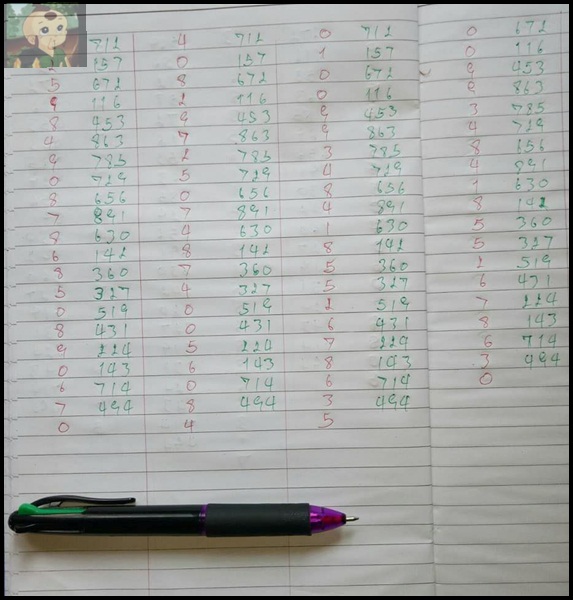 712 4 712 0 712 0 672
157 0 157 1 157 0 116
5 672 8 672 0 672 9 453
9 116 2 116 0 116 9 863
8 453 9 453 9 453 3 785
4 863 7 863 9 863 4 729
9 785 2 785 3 785 8 656
0 729 5 729 4 729 4 891
8 656 0 656 8 656 1 630
7 891 7 891 4 891 8 142
8 630 4 630 1 630 5 360
6 142 8 142 8 142 5 327
8 360 7 360 5 360 2 519
5 327 4 327 5 327 6 431
0 519 0 519 2 519 7 224
8 431 0 431 6 431 8 143
9 224 5 224 7 224 6 714
0 143 6 143 8 143 3 494
6 714 0 714 6 714 0
7 494 8 494 3 494
0 4 5